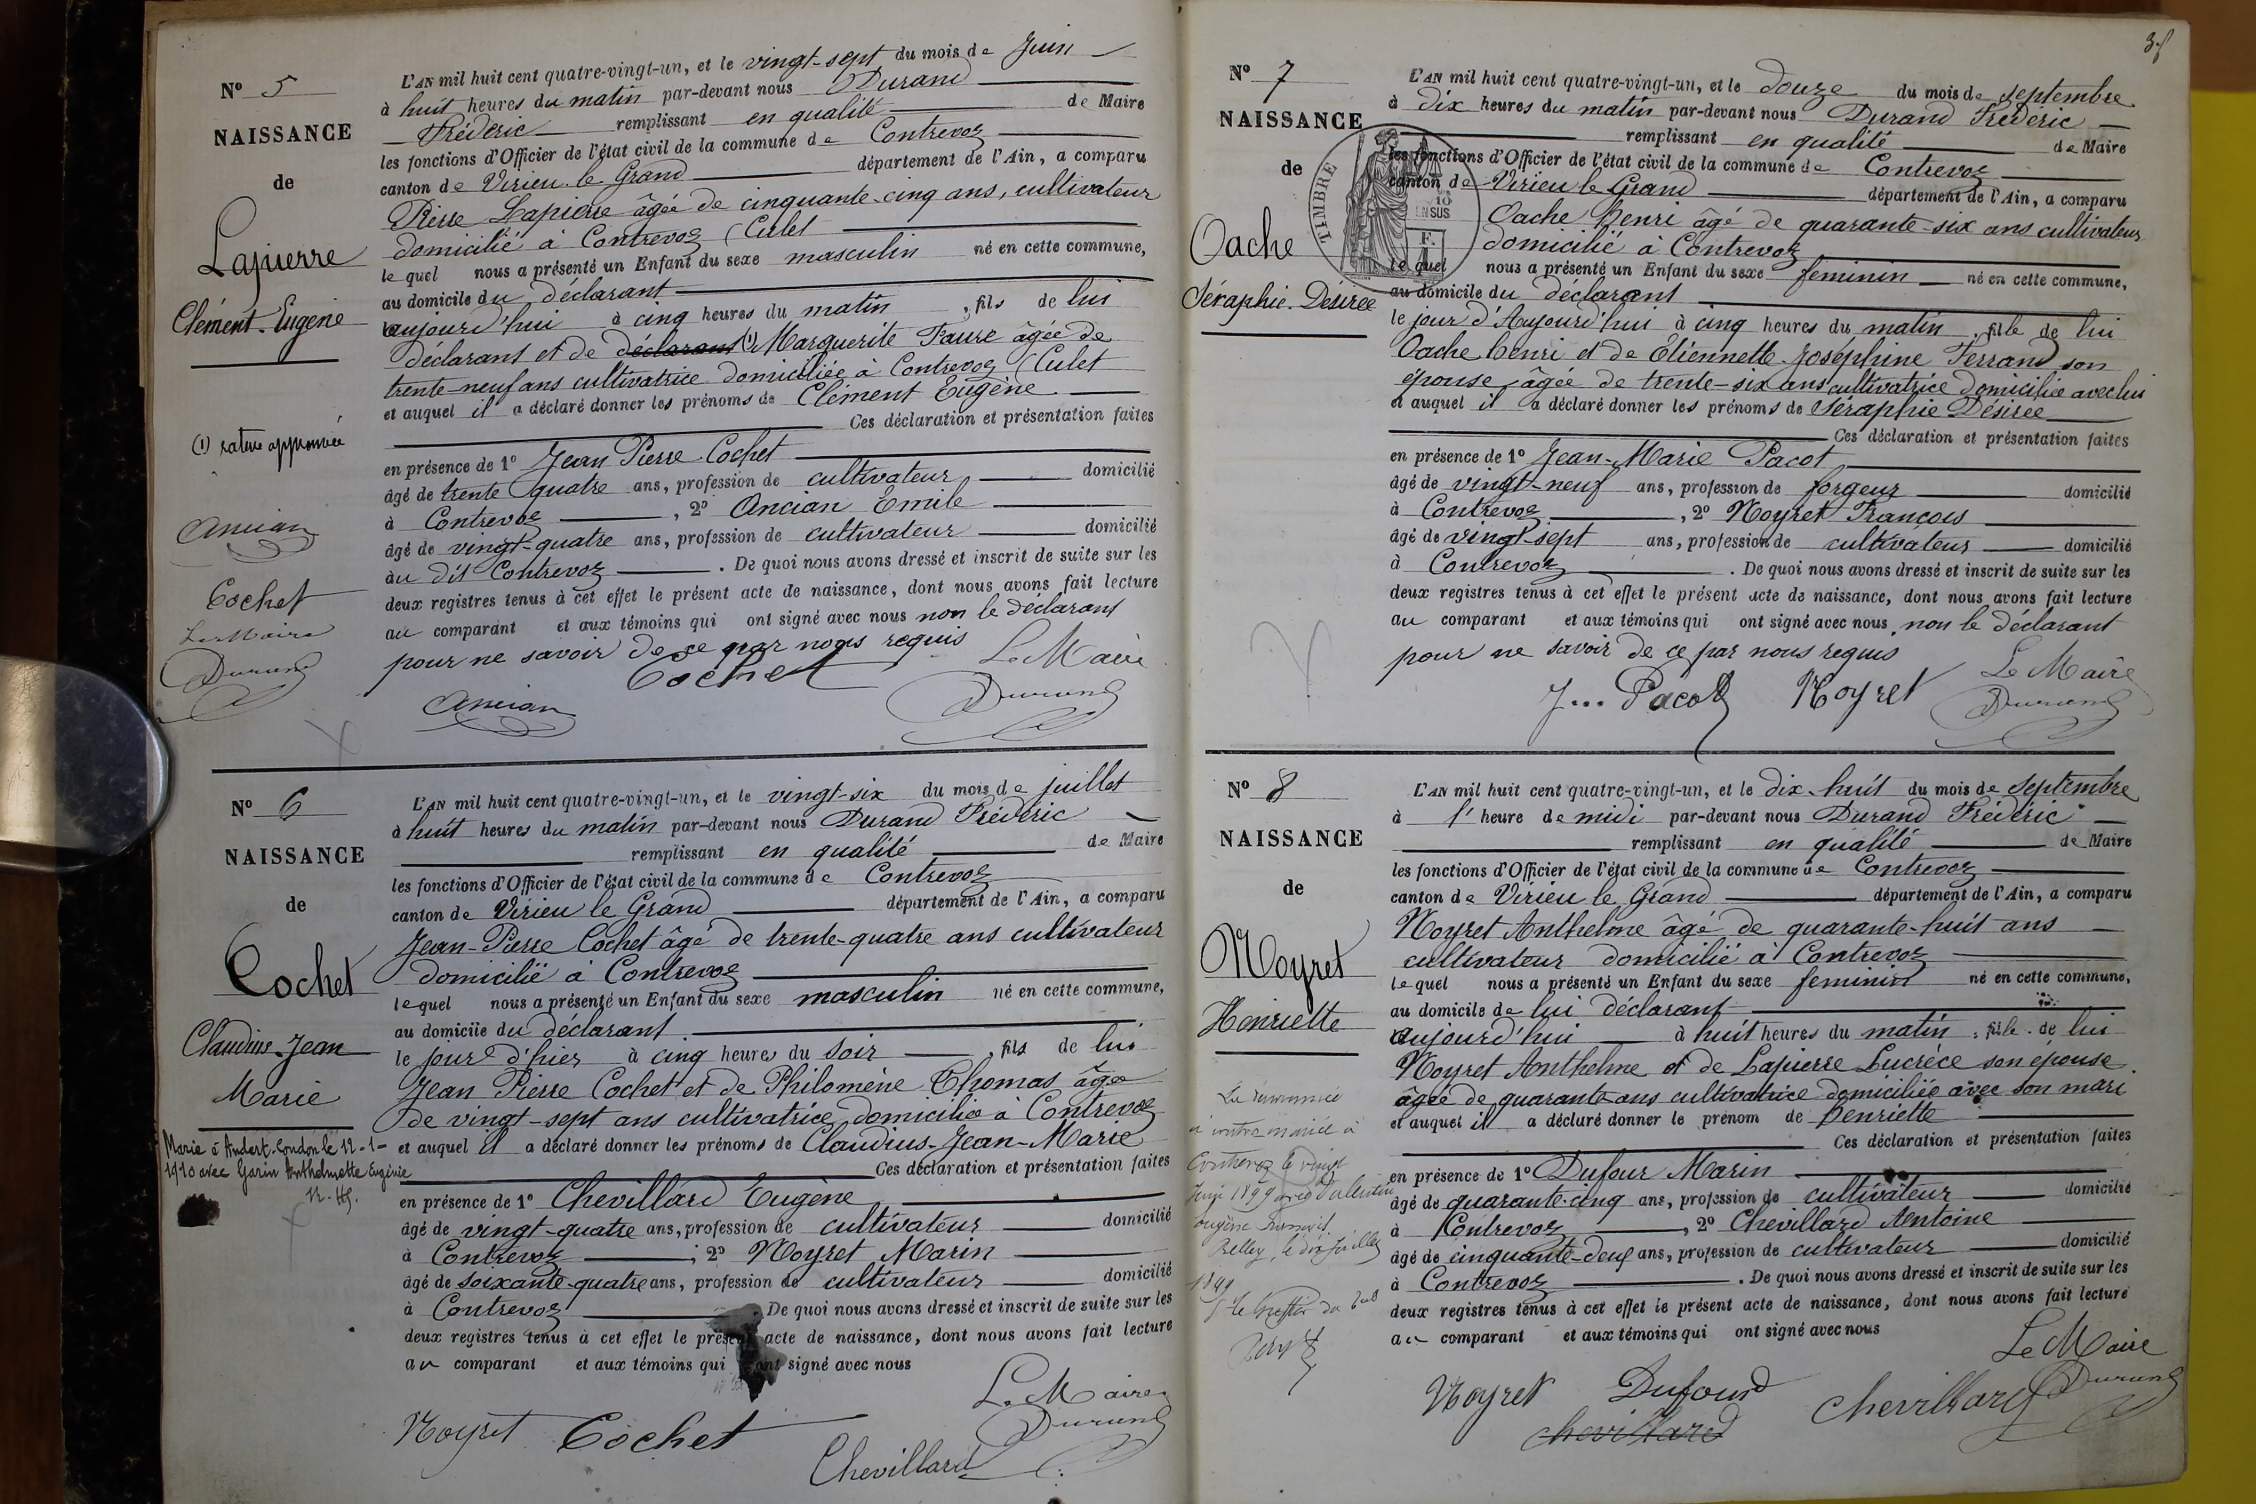 Nº 5
NAISSANCE
de
Lapierre
Clément-Eugène
(1) rature approuvée
Ancian
Cochet
Le Maire
Durand
L'AN mil huit cent quatre-vingt-un, et le vingt-sept du mois de Juin
à huit heures du matin par-devant nous Durand
Frédéric remplissant en qualité de Maire
les fonctions d'Officier de l'état civil de la commune de Contrevoz
canton de Virieu-le-Grand département de l'Ain, a comparu
Pierre Lapierre âgée de cinquante-cinq ans, cultivateur
domicilié à Contrevoz (Culet
lequel nous a présenté un Enfant du sexe masculin né en cette commune,
au domicile du déclarant
aujourd'hui à cinq heures du matin, fils de lui
déclarant et de déclarant (1) Marguerite Faure âgée de
trente-neuf ans cultivatrice domiciliée à Contrevoz (Culet
et auquel il a déclaré donner les prénoms de Clément Eugène
Ces déclaration et présentation faites
en présence de 1º Jean Pierre Cochet
âgé de trente quatre ans, profession de cultivateur domicilié
à Contrevoz, 2º Ancian Emile
âgé de vingt-quatre ans, profession de cultivateur domicilié
au dit Contrevoz. De quoi nous avons dressé et inscrit de suite sur les
deux registres tenus à cet effet le présent acte de naissance, dont nous avons fait lecture
au comparant et aux témoins qui ont signé avec nous non le déclarant
pour ne savoir de ce par nous requis
Cochet Le Maire
Ancian Durand
Nº 6
NAISSANCE
de
Cochet
Claudius-Jean
Marie
Marié à Andert-Condon le 12-1-
1910 avec Garin Anthelmette Eugénie
L'AN mil huit cent quatre-vingt-un, et le vingt-six du mois de juillet
à huit heures du matin par-devant nous Durand Frédéric
remplissant en qualité de Maire
les fonctions d'Officier de l'état civil de la commune de Contrevoz
canton de Virieu le Grand département de l'Ain, a comparu
Jean-Pierre Cochet âgé de trente-quatre ans cultivateur
domicilié à Contrevoz
lequel nous a présenté un Enfant du sexe masculin né en cette commune,
au domicile du déclarant
le jour d'hier à cinq heures du soir, fils de lui
Jean Pierre Cochet et de Philomène Thomas âgée
de vingt-sept ans cultivatrice domiciliée à Contrevoz
et auquel il a déclaré donner les prénoms de Claudius-Jean-Marie
Ces déclaration et présentation faites
en présence de 1º Chevillard Eugène
âgé de vingt-quatre ans, profession de cultivateur domicilié
à Contrevoz; 2º Noyret Marin
âgé de soixante-quatre ans, profession de cultivateur domicilié
à Contrevoz. De quoi nous avons dressé et inscrit de suite sur les
deux registres tenus à cet effet le présent acte de naissance, dont nous avons fait lecture
au comparant et aux témoins qui ont signé avec nous
Le Maire
Noyret Cochet Durand
Chevillard
Nº 7
NAISSANCE
de
Oache
Séraphie-Désirée
TIMBRE
10
EN SUS
F.
L'AN mil huit cent quatre-vingt-un, et le douze du mois de septembre
à dix heures du matin par-devant nous Durand Frédéric
remplissant en qualité de Maire
les fonctions d'Officier de l'état civil de la commune de Contrevoz
canton de Virieu le Grand département de l'Ain, a comparu
Oache henri âgé de quarante-six ans cultivateur
domicilié à Contrevoz
lequel nous a présenté un Enfant du sexe féminin né en cette commune,
au domicile du déclarant
le jour d'Aujourd'hui à cinq heures du matin, fille de lui
Oache henri et de Etiennette-Joséphine Ferrand son
épouse, âgée de trente-six ans cultivatrice domiciliée avec lui
et auquel il a déclaré donner les prénoms de Séraphie Désirée
Ces déclaration et présentation faites
en présence de 1º Jean-Marie Pacot
âgé de vingt-neuf ans, profession de forgeur domicilié
à Contrevoz, 2º Noyret François
âgé de vingt-sept ans, profession de cultivateur domicilié
à Contrevoz. De quoi nous avons dressé et inscrit de suite sur les
deux registres tenus à cet effet le présent acte de naissance, dont nous avons fait lecture
au comparant et aux témoins qui ont signé avec nous, non le déclarant
pour ne savoir de ce par nous requis
Le Maire
J... Pacot Noyret Durand
Nº 8
NAISSANCE
de
Noyret
Henriette
La dénommée
ci contre mariée à
Contrevoz le vingt
Juin 1899 avec Valentin
Eugène
Belley, le dix Juillet
1899
le Greffier du
L'AN mil huit cent quatre-vingt-un, et le dix-huit du mois de septembre
à l'heure de midi par-devant nous Durand Frédéric
remplissant en qualité de Maire
les fonctions d'Officier de l'état civil de la commune de Contrevoz
canton de Virieu le Grand département de l'Ain, a comparu
Noyret Anthelme âgé de quarante-huit ans
cultivateur domicilié à Contrevoz
lequel nous a présenté un Enfant du sexe feminin né en cette commune,
au domicile de lui déclarant
aujourd'hui à huit heures du matin, fille de lui
Noyret Anthelme et de Lapierre Lucrèce son épouse
âgée de quarante ans cultivatrice domiciliée avec son mari
et auquel il a déclaré donner le prénom de henriette
Ces déclaration et présentation faites
en présence de 1º Dufour Marin
âgé de quarante-cinq ans, profession de cultivateur domicilié
à Contrevoz, 2º Chevillard Antoine
âgé de cinquante-deux ans, profession de cultivateur domicilié
à Contrevoz. De quoi nous avons dressé et inscrit de suite sur les
deux registres tenus à cet effet le présent acte de naissance, dont nous avons fait lecture
au comparant et aux témoins qui ont signé avec nous
Le Maire
Noyret Dufour Chevillard Durand
chevillard